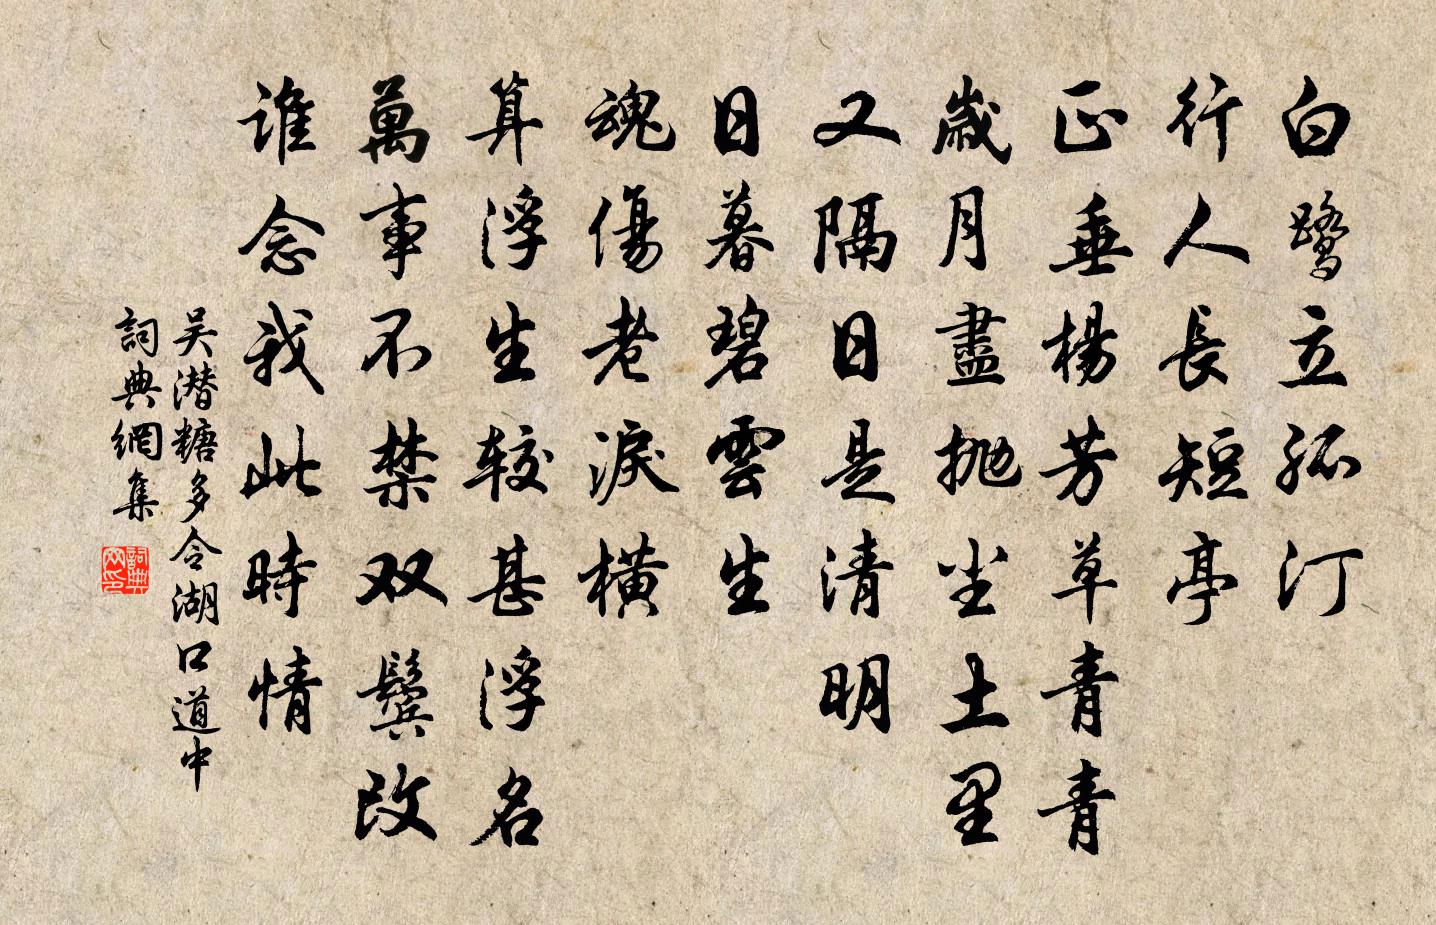 白鹭立孤汀
行人長短亭
正垂楊芳草青青
歲月盡拋尘土里
又隔日是清明
日暮碧雲生
魂傷老淚橫
算浮生较甚浮名
萬事不禁双鬓改
谁念我此時情
吴潜糖多令湖口道中
詞典網集
詞典网印